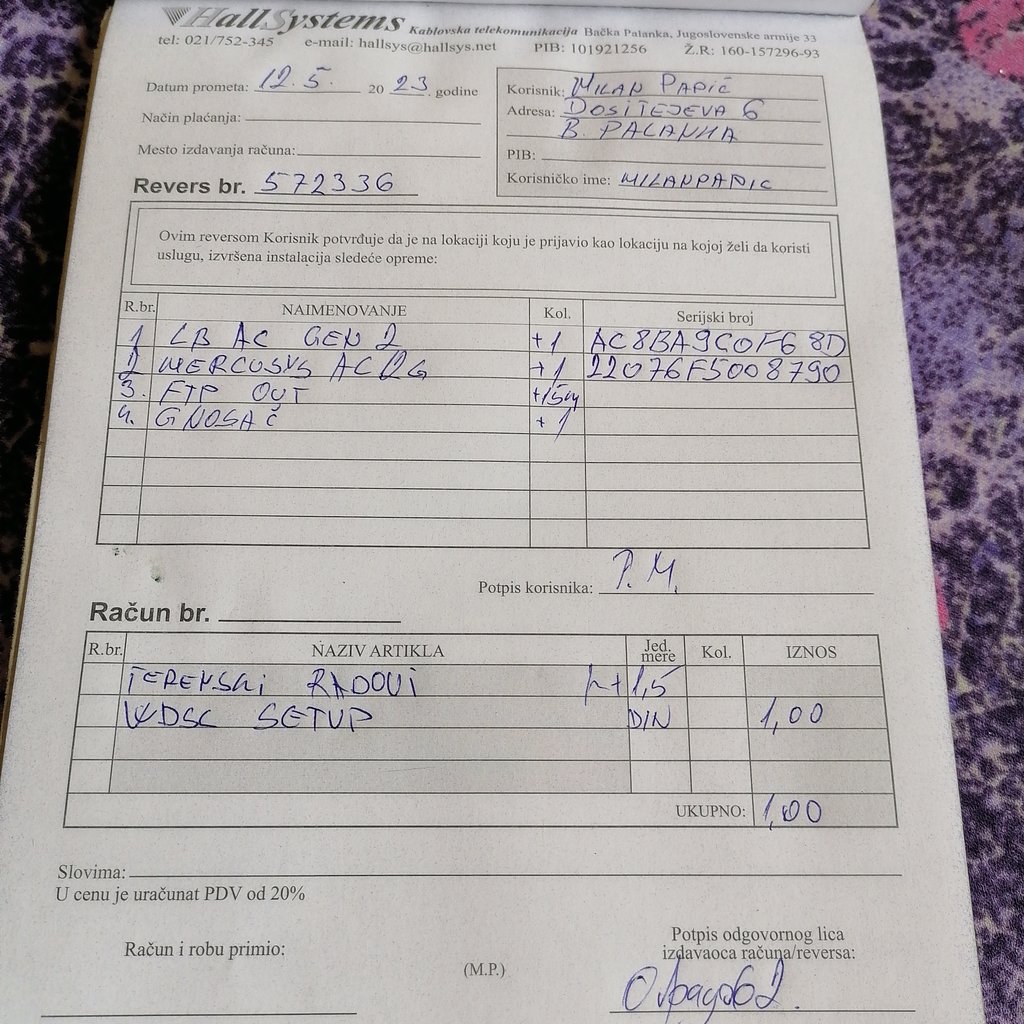 HallSystems Kablovska telekomunikacija Bačka Palanka, Jugoslovenske armije 33
tel: 021/752-345 e-mail: hallsys@hallsys.net PIB: 101921256 Ž.R: 160-157296-93
Datum prometa: 12.5. 20 23. godine
Način plaćanja:
Mesto izdavanja računa:
Revers br. 572336
Korisnik: MILAN PAPIĆ
Adresa: DOSITEJEVA 6
B. PALANKA
PIB:
Korisničko ime: MILANPAPIC
Ovim reversom Korisnik potvrđuje da je na lokaciji koju je prijavio kao lokaciju na kojoj želi da koristi
uslugu, izvršena instalacija sledeće opreme:
R.br. NAIMENOVANJE Kol. Serijski broj
1 LB AC GEN 2 +1 AC8BA9C0F68D
2 MERCUSYS AC12G +1 22076F5008790
3. FTP OUT +15m
4. G NOSAČ +1
Potpis korisnika: P.M.
Račun br.
R.br. NAZIV ARTIKLA Jed. mere Kol. IZNOS
TERENSKI RADOVI +1,5
WDSC SETUP DIN 1,00
UKUPNO: 1,00
Slovima:
U cenu je uračunat PDV od 20%
Račun i robu primio:
(M.P.)
Potpis odgovornog lica
izdavaoca računa/reversa: